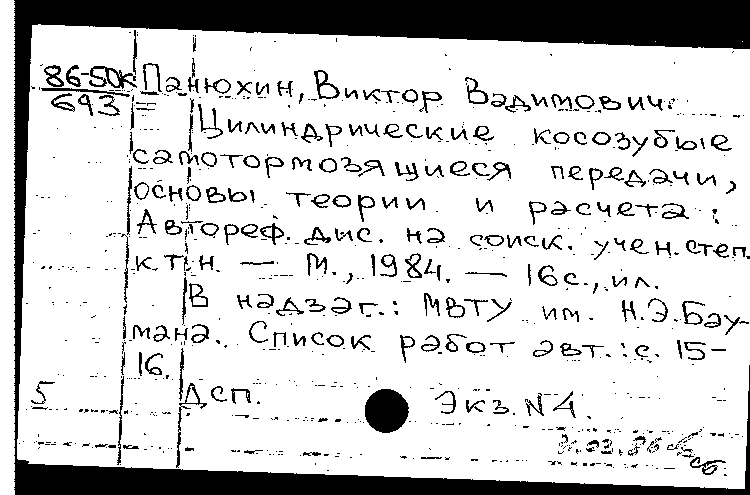 86-50к Панюхин, Виктор Вадимович.
693 = Цилиндрические косозубые
самотормозящиеся передачи,
основы теории и расчета:
Автореф. дис. на соиск. учен. степ.
к.т.н. — М., 1984. — 16 с., ил.
В надзаг.: МВТУ им. Н.Э.Бау-
мана. Список работ авт.: с. 15-
16.
5 ДСП. Экз. N 4.
03.86